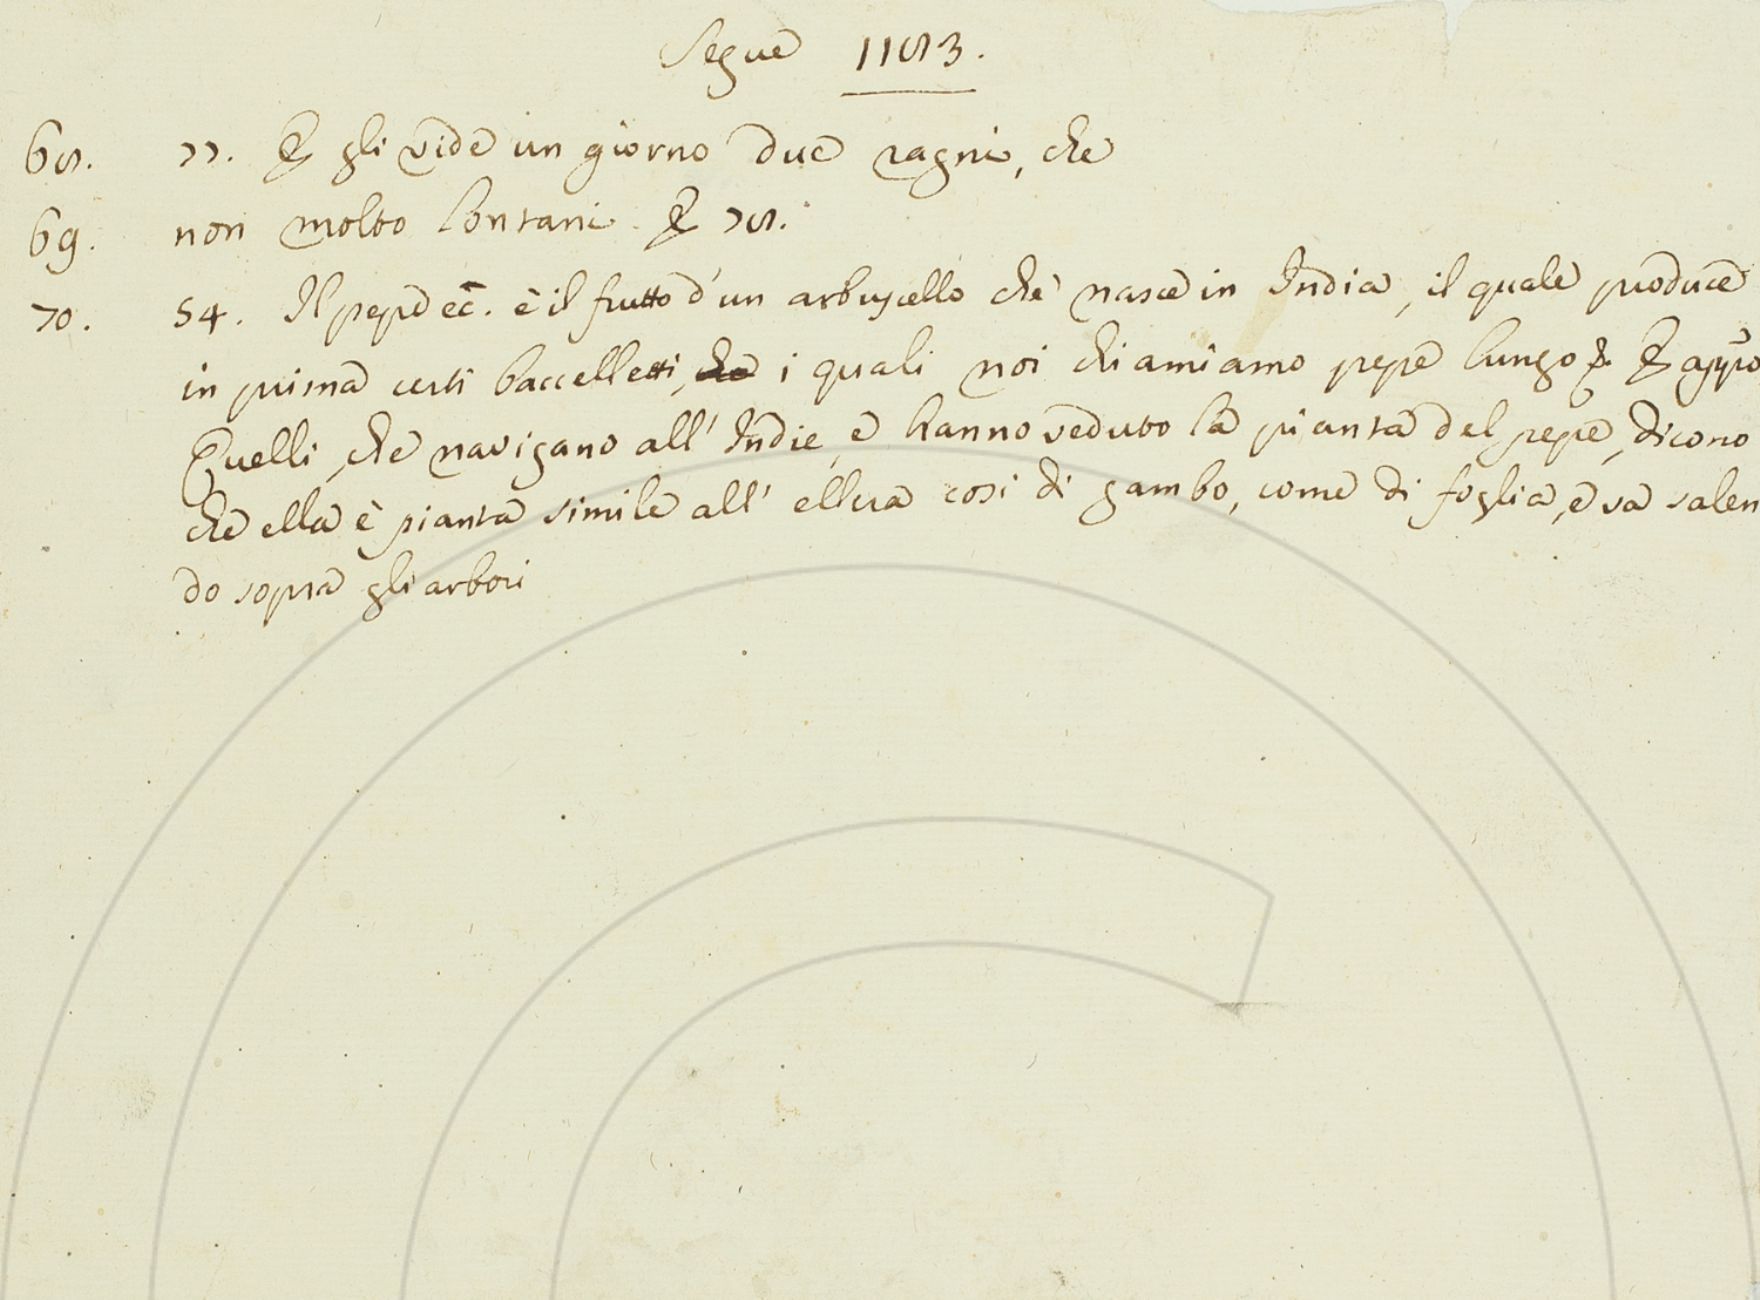 Segue 1183.
68. 77. & gli vide un giorno due ragni, che
69. non molto lontani & 78.
70. 54. Il pepe ec. è il frutto d'un arbuscello che nasce in India, il quale produce
in prima certi baccelletti, che i quali noi chiamiamo pepe lungo & & appo
Quelli, che navigano all' Indie, e hanno veduto la pianta del pepe, dicono
che ella è pianta simile all' ellera cosi di gambo, come di foglia, e va salen
do sopra gli arbori